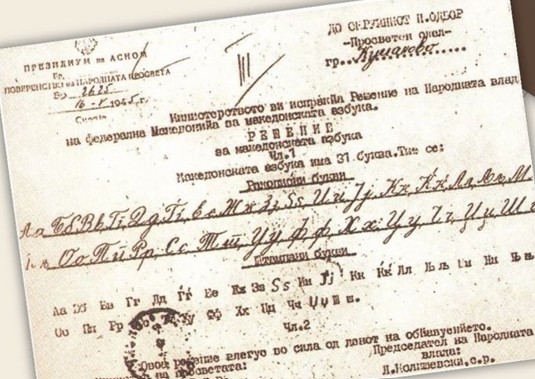 ПРЕЗИДИУМ на АСНОМ
ПОВЕРЕНСТВО на НАРОДНАТА ПРОСВЕТА
Бр. 2625
16-V-1945 г.
Скопје
III
ДО ОКРУЖНИОТ Н.ОДБОР
-Просветен одел-
гр. Куманово
Министерството ви испраќа Решение на Народната влад
на федерална Македонија за македонската азбука.
РЕШЕНИЕ
за македонската азбука
Чл.1
Македонската азбука има 31 буква. Тие се:
Ракописни букви
Аа, Бб Вв Гг, Дд Ѓѓ, Ее Жж Зз, Ѕѕ, Ии Јј, Кк, Ќќ Лл, Љљ М
Оо Пп Рр, Сс Тт, Уу, Фф, Хх Цц, Чч, Џџ Шш
Штампани букви
Аа Бб Вв Гг Дд Ѓѓ Ее Жж Зз Ѕѕ Ии Јј Кк Ќќ Лл Љљ Мм Нн Њњ
Оо Пп Рр Сс Тт Уу Фф Хх Цц Чч Џџ Шш.
Чл.2
Ова решение влегува во сила од денот на обнавуењето.
Председател на Народната
влада:
Л.Колишевски, с.р.
на просветата: